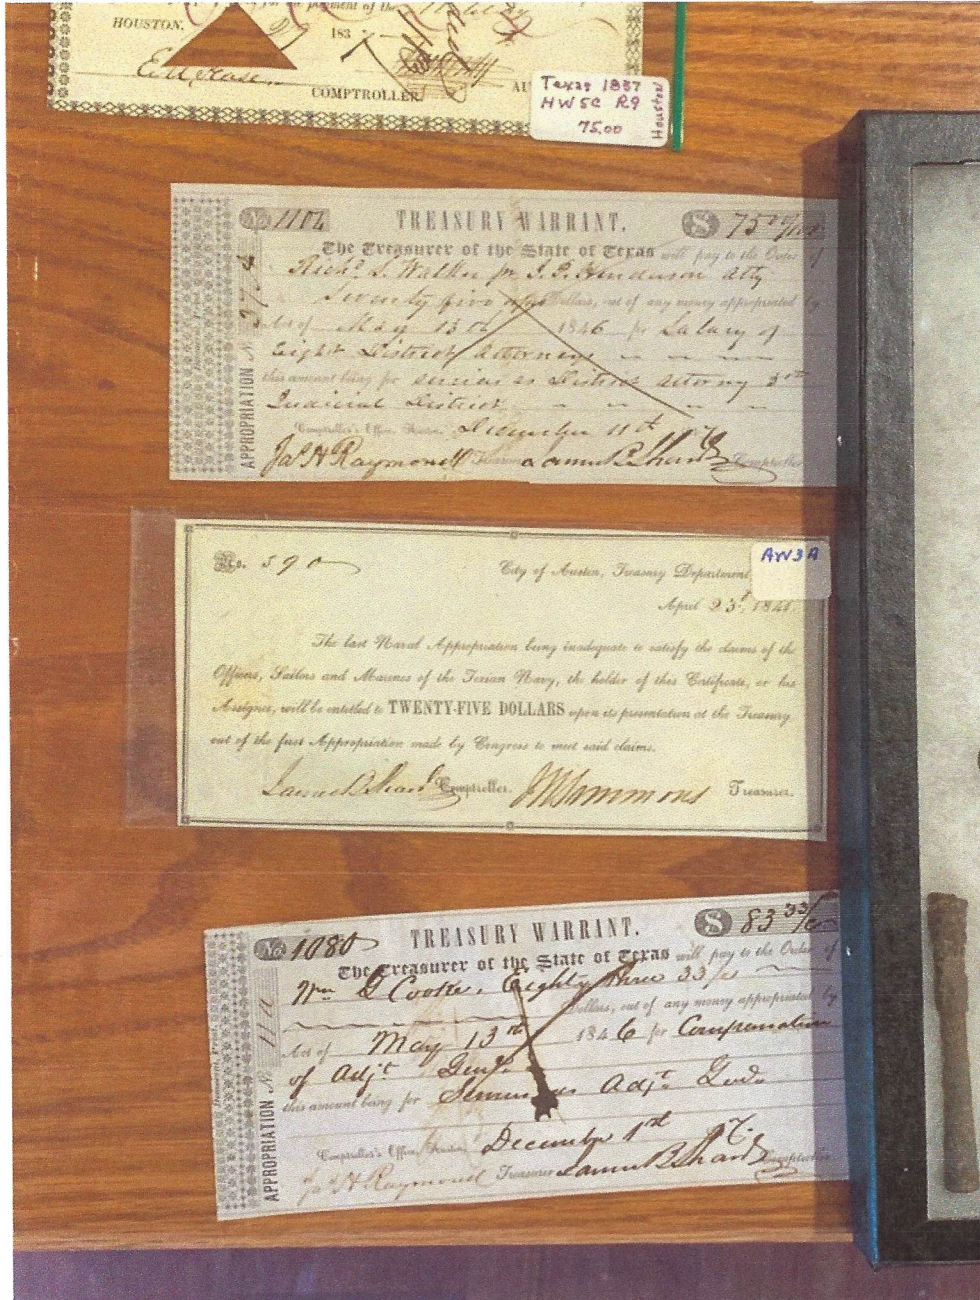 for the payment of the
HOUSTON, 1837
COMPTROLLER AU
Texas 1837
HW5C R9
75.00
Houston
No. 1102 TREASURY WARRANT. $ 75 00/100
The Treasurer of the State of Texas will pay to the Order of
Richd. S. Walker for J. P. Henderson Atty
Seventy five Dollars, out of any money appropriated by
Act of May 13th 1846 for Salary of
Eight District Attorneys
this amount being for services as District Attorney 3rd
Judicial District
Comptroller's Office, Austin, December 11th 184
Jas H Raymond Treasurer James B Shaw Comptroller
APPROPRIATION No.
No. 590 City of Austin, Treasury Department
AW3A
April 23d, 1841.
The last Naval Appropriation being inadequate to satisfy the claims of the
Officers, Sailors and Marines of the Texian Navy, the holder of this Certificate, or his
Assignee, will be entitled to TWENTY-FIVE DOLLARS upon its presentation at the Treasury
out of the first Appropriation made by Congress to meet said claims.
James B Shaw Comptroller. JW Simmons Treasurer.
No. 1080 TREASURY WARRANT. $ 83 33/
The Treasurer of the State of Texas will pay to the Order of
Wm G Cooke, Eighty three 33/
Dollars, out of any money appropriated by
Act of May 13th 1846 for Compensation
of Adjt Genl
this amount being for Services Adjt Genl
Comptroller's Office, Austin, December 1st
Jas H Raymond Treasurer James B Shaw Comptroller
APPROPRIATION No.